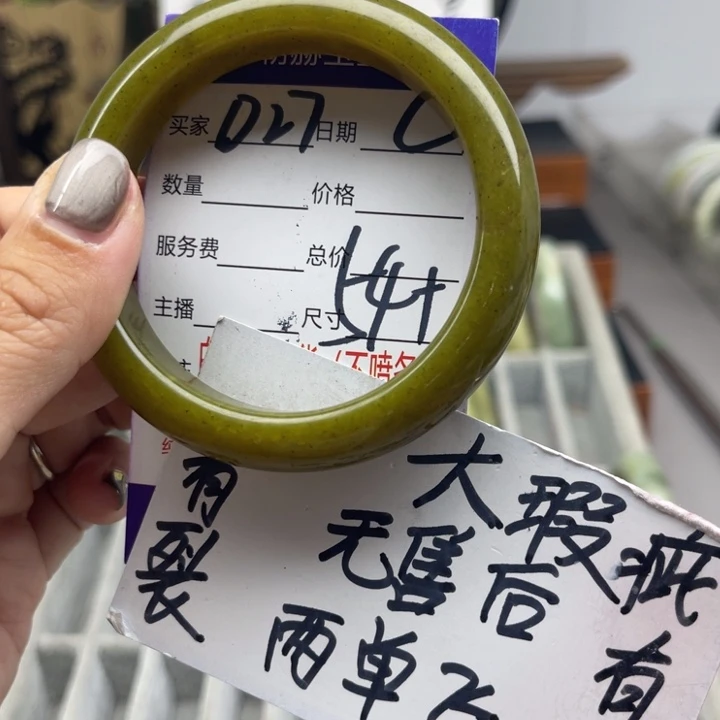 买家 027 日期
数量 价格
服务费 总价
主播 尺寸 54+
(不喷
有裂
大瑕疵有
无售后
两单不